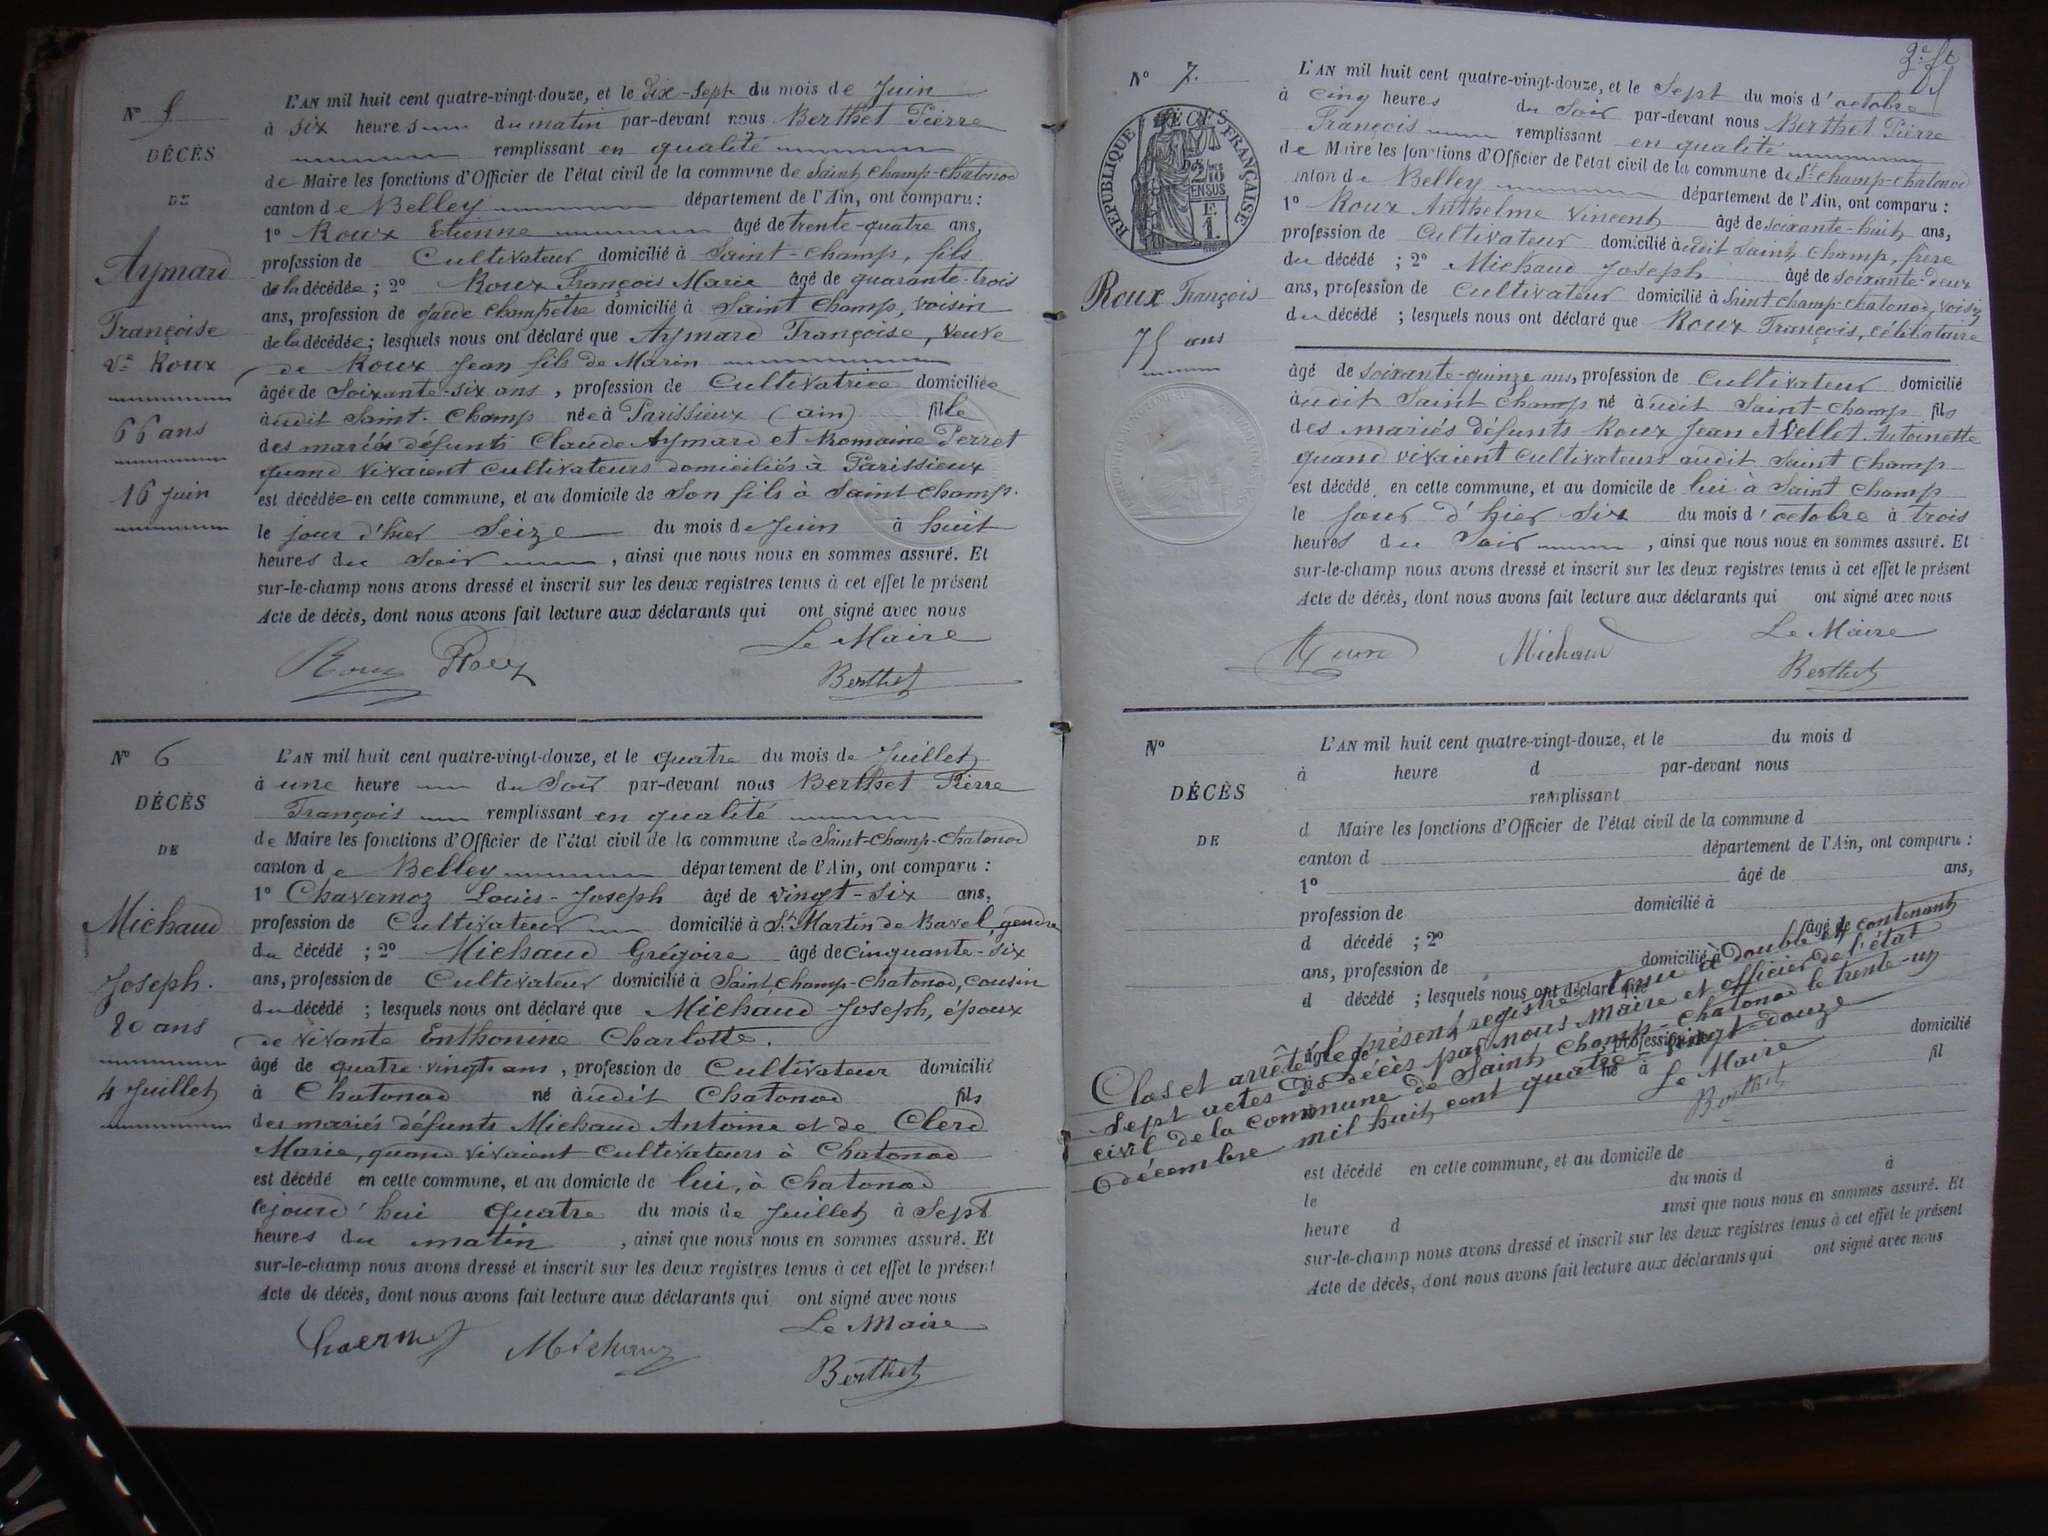 N° 5
DÉCÈS
DE
Aymard
Françoise
Ve Roux
66 ans
16 juin
L'AN mil huit cent quatre-vingt-douze, et le dix-sept du mois de Juin
à six heures du matin par-devant nous Berthet Pierre
remplissant en qualité
de Maire les fonctions d'Officier de l'état civil de la commune de Saint Champ-Chatonod
canton de Belley département de l'Ain, ont comparu :
1° Roux Etienne âgé de trente-quatre ans,
profession de Cultivateur domicilié à Saint-Champ, fils
de la décédée ; 2° Roux François Marie âgé de quarante-trois
ans, profession de garde champêtre domicilié à Saint Champ, voisin
de la décédée ; lesquels nous ont déclaré que Aymard Françoise, veuve
de Roux Jean fils de Marin
âgée de Soixante-six ans, profession de Cultivatrice domiciliée
audit Saint-Champ née à Parissieux (ain) fille
des mariés défunts Claude Aymard et Romaine Perret
quand vivaient cultivateurs domiciliés à Parissieux
est décédée en cette commune, et au domicile de son fils à Saint Champ.
le jour d'hier Seize du mois de Juin à huit
heures du soir, ainsi que nous nous en sommes assuré. Et
sur-le-champ nous avons dressé et inscrit sur les deux registres tenus à cet effet le présent
Acte de décès, dont nous avons fait lecture aux déclarants qui ont signé avec nous
Le Maire
Roux Roux Berthet
N° 6
DÉCÈS
DE
Michaud
Joseph.
80 ans
4 Juillet
L'AN mil huit cent quatre-vingt-douze, et le quatre du mois de Juillet
à une heure du Soir par-devant nous Berthet Pierre
François remplissant en qualité
de Maire les fonctions d'Officier de l'état civil de la commune de Saint-Champ-Chatonod
canton de Belley département de l'Ain, ont comparu :
1° Chavernoz Louis-Joseph âgé de vingt-six ans,
profession de Cultivateur domicilié à St Martin de Bavel, gendre
du décédé ; 2° Michaud Grégoire âgé de cinquante-six
ans, profession de Cultivateur domicilié à Saint, Champ-Chatonod, cousin
du décédé ; lesquels nous ont déclaré que Michaud Joseph, époux
de vivante Enthonine Charlotte.
âgé de quatre-vingts ans, profession de Cultivateur domicilié
à Chatonod né audit Chatonod fils
des mariés défunts Michaud Antoine et de Clerd
Marie, quand vivaient cultivateurs à Chatonod
est décédé en cette commune, et au domicile de lui, à Chatonod
cejourd'hui quatre du mois de Juillet à Sept
heures du matin, ainsi que nous nous en sommes assuré. Et
sur-le-champ nous avons dressé et inscrit sur les deux registres tenus à cet effet le présent
Acte de décès, dont nous avons fait lecture aux déclarants qui ont signé avec nous
Le Maire
Michaud Berthet
N° 7.
RÉPUBLIQUE FRANÇAISE
DÉCÈS
2/10 EN SUS
Roux François
75 ans
L'AN mil huit cent quatre-vingt-douze, et le Sept du mois d'octobre
à cinq heures du Soir par-devant nous Berthet Pierre
François remplissant en qualité
de Maire les fonctions d'Officier de l'état civil de la commune de St Champ-Chatonod
canton de Belley département de l'Ain, ont comparu :
1° Roux Anthelme Vincent âgé de soixante-huit ans,
profession de Cultivateur domicilié audit Saint Champ, frère
du décédé ; 2° Michaud Joseph âgé de soixante-deux
ans, profession de Cultivateur domicilié à Saint Champ-Chatonod, voisin
du décédé ; lesquels nous ont déclaré que Roux François, célibataire
âgé de soixante-quinze ans, profession de Cultivateur domicilié
audit Saint Champ né audit Saint-Champ fils
des mariés défunts Roux Jean & Vellet Antoinette
quand vivaient cultivateurs audit Saint Champ
est décédé en cette commune, et au domicile de lui à Saint Champ
le jour d'hier six du mois d'octobre à trois
heures du Soir, ainsi que nous nous en sommes assuré. Et
sur-le-champ nous avons dressé et inscrit sur les deux registres tenus à cet effet le présent
Acte de décès, dont nous avons fait lecture aux déclarants qui ont signé avec nous
Le Maire
Michaud Berthet
N°
DÉCÈS
DE
L'AN mil huit cent quatre-vingt-douze, et le du mois d
à heure d par-devant nous
remplissant
d Maire les fonctions d'Officier de l'état civil de la commune d
canton d département de l'Ain, ont comparu :
1° âgé de ans,
profession de domicilié à
d décédé ; 2° âgé de
ans, profession de domicilié à
d décédé ; lesquels nous ont déclaré que
âgé de profession de domicilié
né à fil
Clos et arrêté le présent registre tenu à double et contenant
sept actes de décès par nous Maire et officier de l'état
civil de la commune de Saint Champ-Chatonod le trente-un
décembre mil huit cent quatre-vingt-douze
Le Maire
Berthet
est décédé en cette commune, et au domicile de
le du mois d à
heure d ainsi que nous nous en sommes assuré. Et
sur-le-champ nous avons dressé et inscrit sur les deux registres tenus à cet effet le présent
Acte de décès, dont nous avons fait lecture aux déclarants qui ont signé avec nous